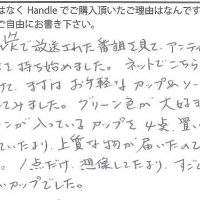 はなく Handle でご購入頂いたご理由はなんです
ご自由にお書き下さい。
で放送された番組を見て、アンティ
を持ち始めました。ネットでこちら
けて、まずはお手軽なカップ&ソー
てみました。グリーン色が大好き
ーンが入っているカップを4点、買い
ていたより、上質な物が届いたので
。1点だけ、想像してたより、すご
いカップでした。